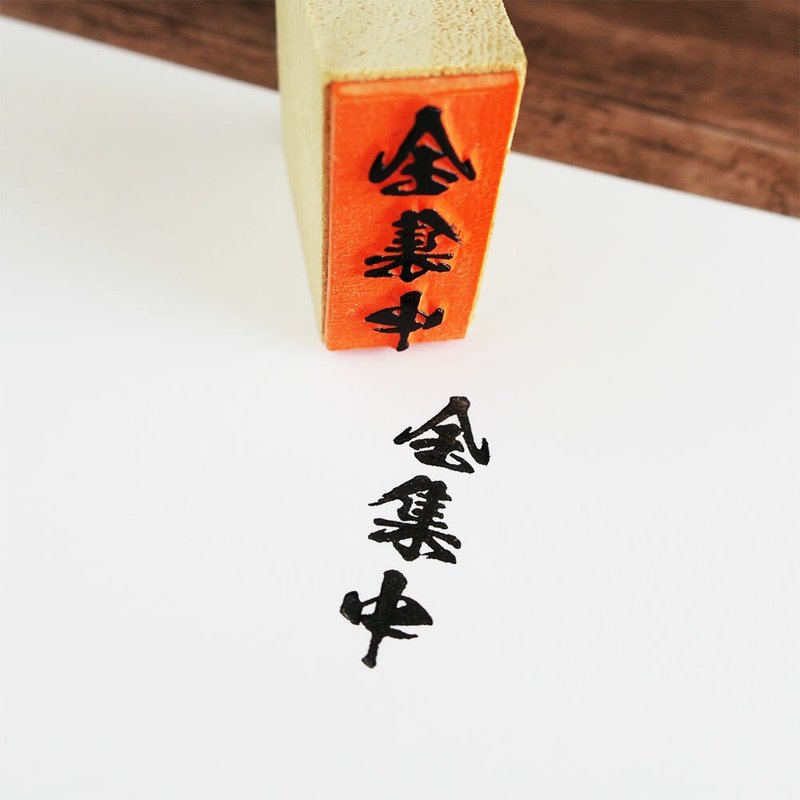 全集中
全集中